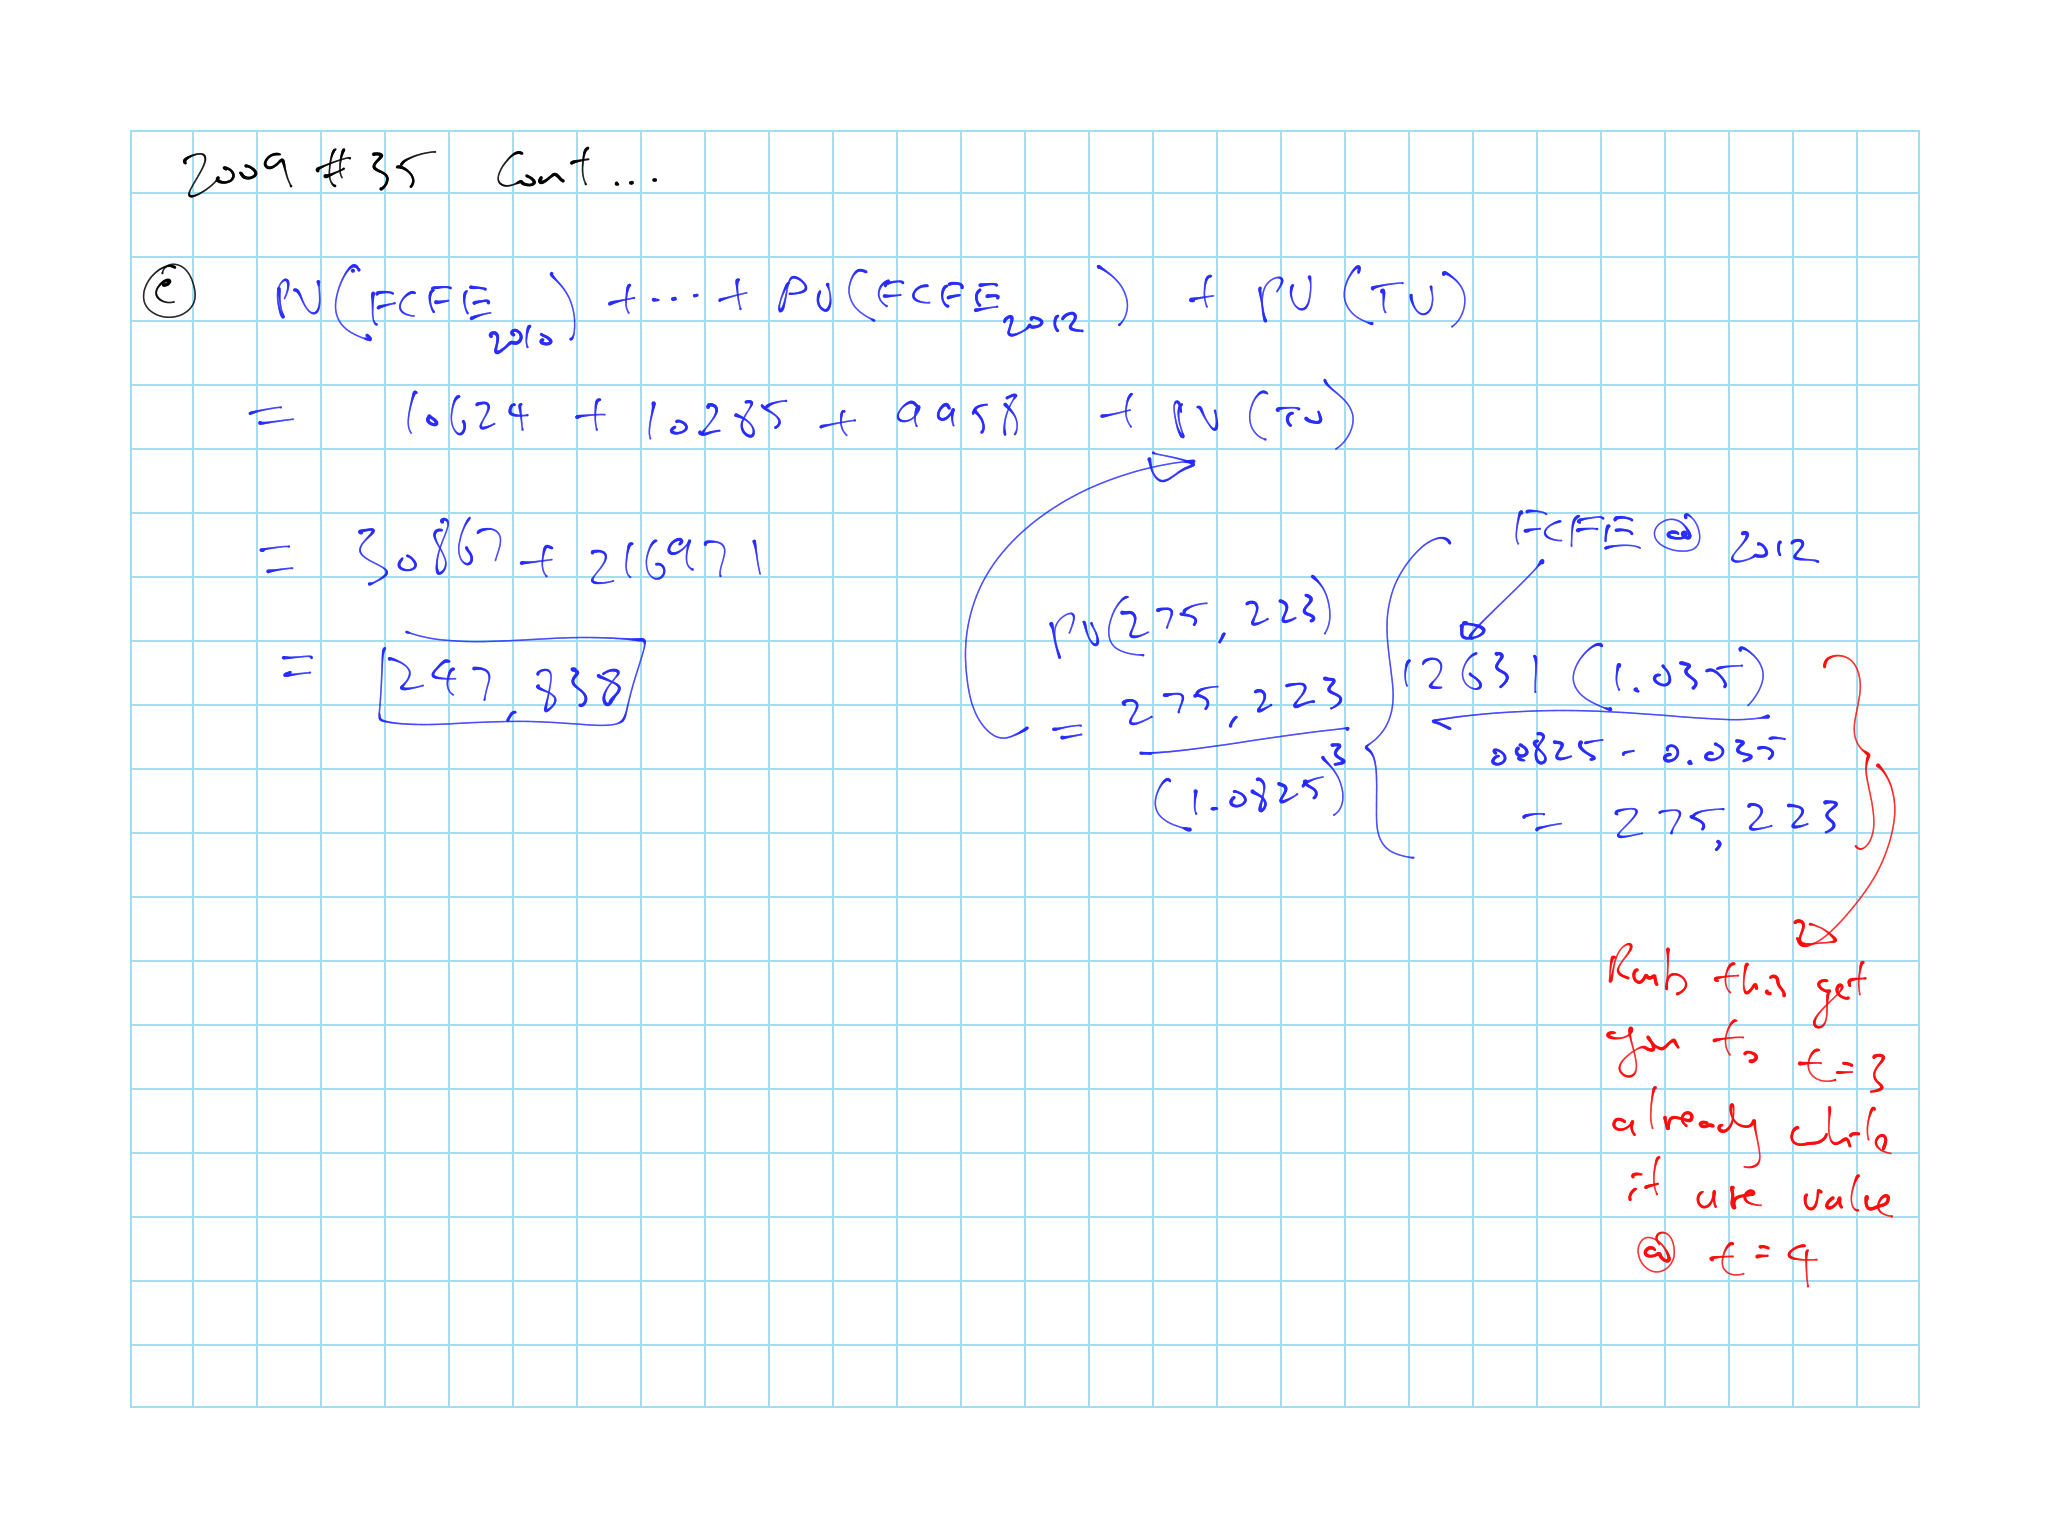 2009 #35 Cont...
(c) PV(FCFE2010) +...+ PV(FCFE2012) + PV(TV)
= 10624 + 10285 + 9958 + PV(TV)
= 30867 + 216971
= 247,838
FCFE @ 2012
12631 (1.035)
00825 - 0.035
= 275,223
PV(275,223)
= 275,223
(1.0825)3
this get
you to t=3
already while
it use value
@ t=4